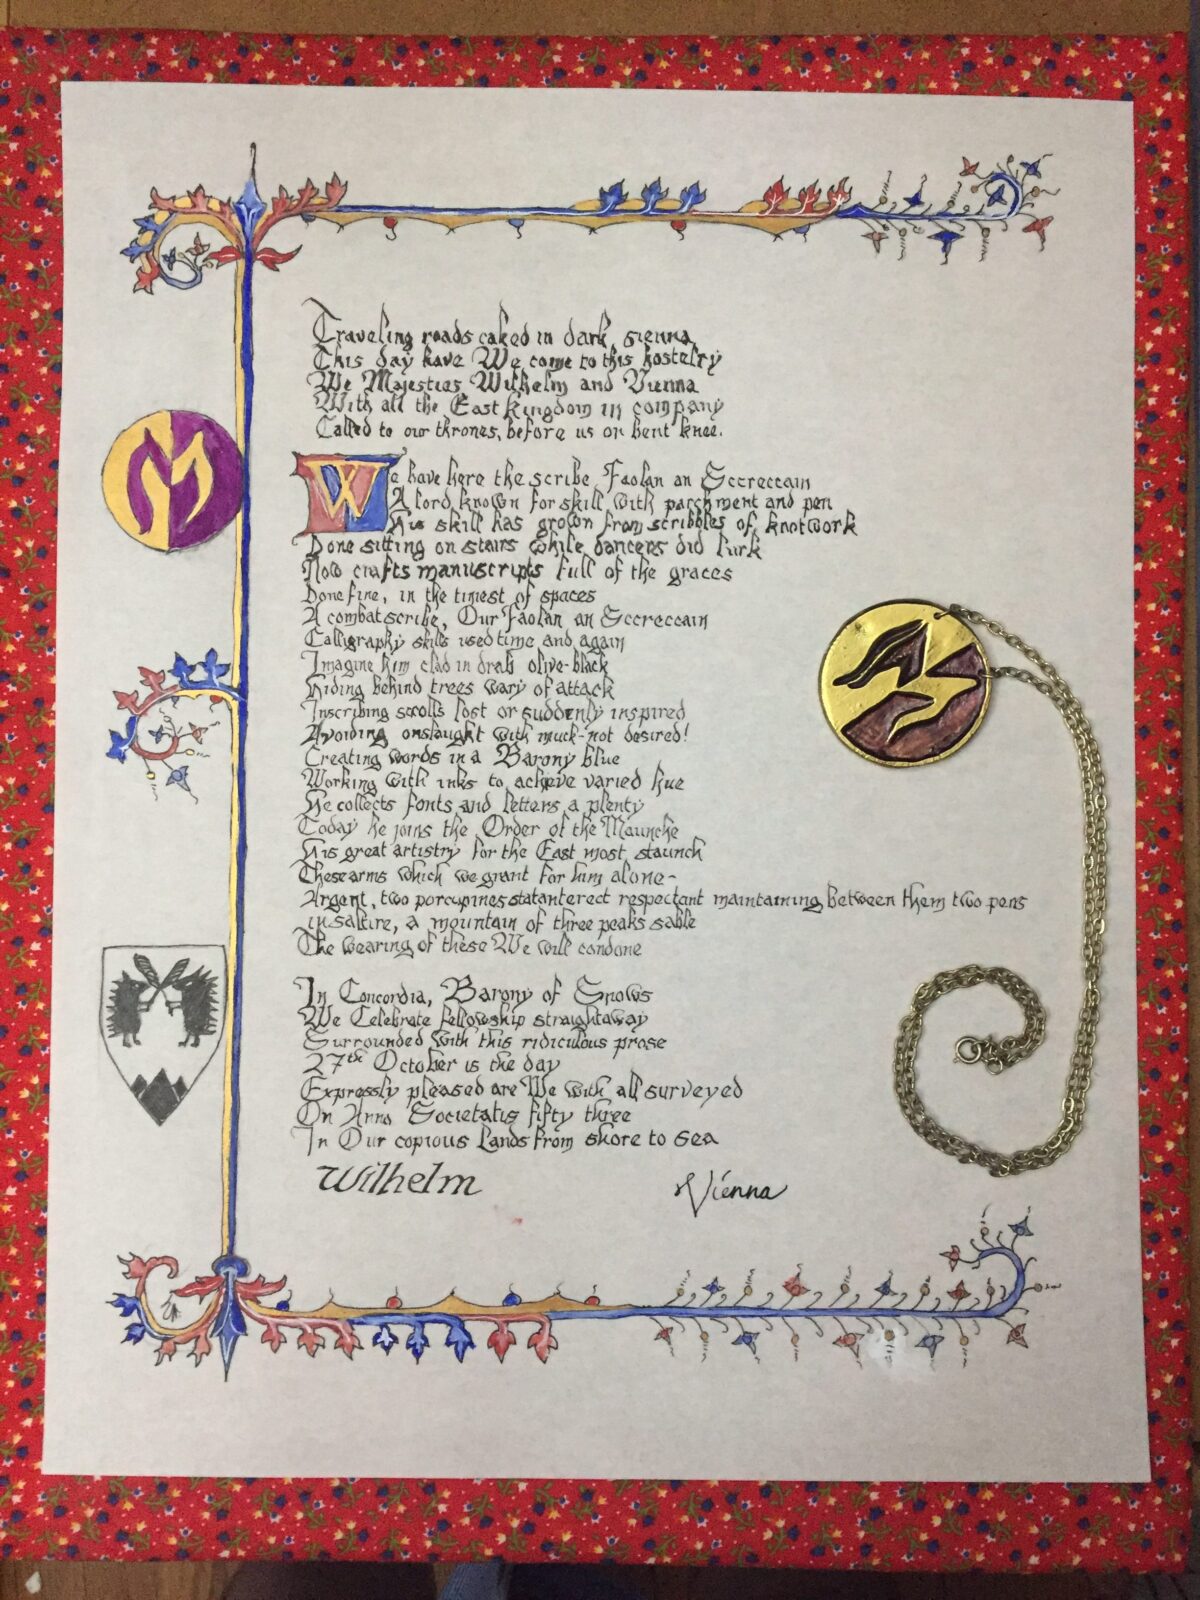 Traveling roads caked in dark sienna
This day have We come to this hostelry
We Majesties Wilhelm and Vienna
With all the East Kingdom in company
Called to our thrones, before us on bent knee.
We have here the scribe Faolan an Sccreccain
A lord known for skill with parchment and pen
His skill has grown from scribbles of knotwork
Done sitting on stairs while dancers did lurk
Now crafts manuscripts full of the graces
Done fine, in the tiniest of spaces
A combat scribe, Our Faolan an Sccreccain
Calligraphy skills used time and again
Imagine him clad in drab olive-black
Hiding behind trees wary of attack
Inscribing scrolls lost or suddenly inspired
Avoiding onslaught with muck-not desired!
Creating words in a Barony blue
Working with inks to achieve varied hue
He collects fonts and letters a plenty
Today he joins the Order of the Maunche
His great artistry for the East most staunch
These arms which we grant for him alone-
Argent, two porcupines statant erect respectant maintaining between them two pens
in saltire, a mountain of three peaks sable
The wearing of these We will condone
In Concordia, Barony of Snows
We Celebrate fellowship straightaway
Surrounded with this ridiculous prose
27th October is the day
Expressly pleased are We with all surveyed
On Anno Societatis fifty three
In Our copious Lands from shore to sea
Wilhelm Vienna